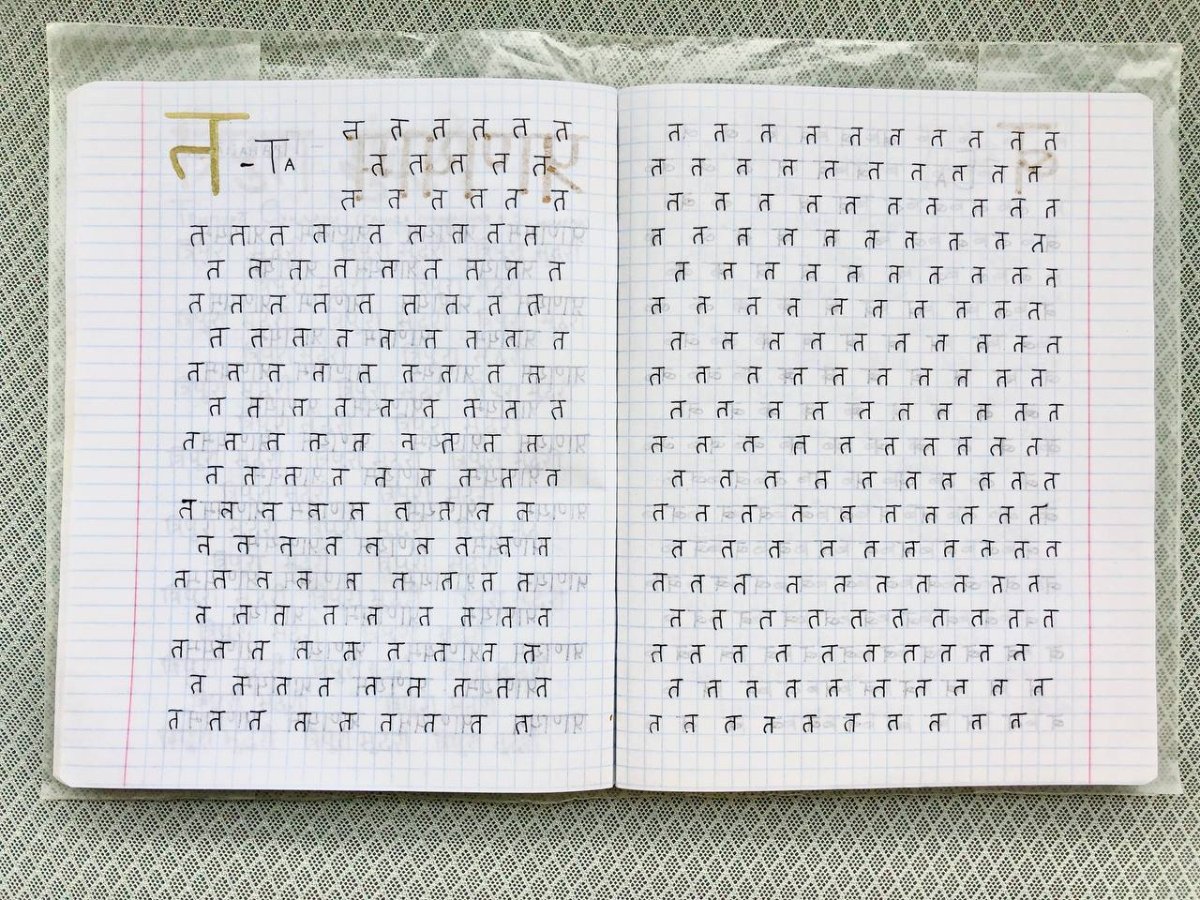 त - TA
त त त त त त
त त त त त
त त त त त त
त त त त त त त त त
त त त त त त त त त
त त त त त त त त त
त त त त त त त त त
त त त त त त त त त
त त त त त त त त त
त त त त त त त त त
त त त त त त त त त
त त त त त त त त त
त त त त त त त त त
त त त त त त त त त
त त त त त त त त त
त त त त त त त त त
त त त त त त त त त
त त त त त त त त त
त त त त त त त त त त
त त त त त त त त त त
त त त त त त त त त त
त त त त त त त त त त
त त त त त त त त त त
त त त त त त त त त त
त त त त त त त त त त
त त त त त त त त त त
त त त त त त त त त त
त त त त त त त त त त
त त त त त त त त त त
त त त त त त त त त त
त त त त त त त त त त
त त त त त त त त त त
त त त त त त त त त त
त त त त त त त त त त
त त त त त त त त त त
त त त त त त त त त त